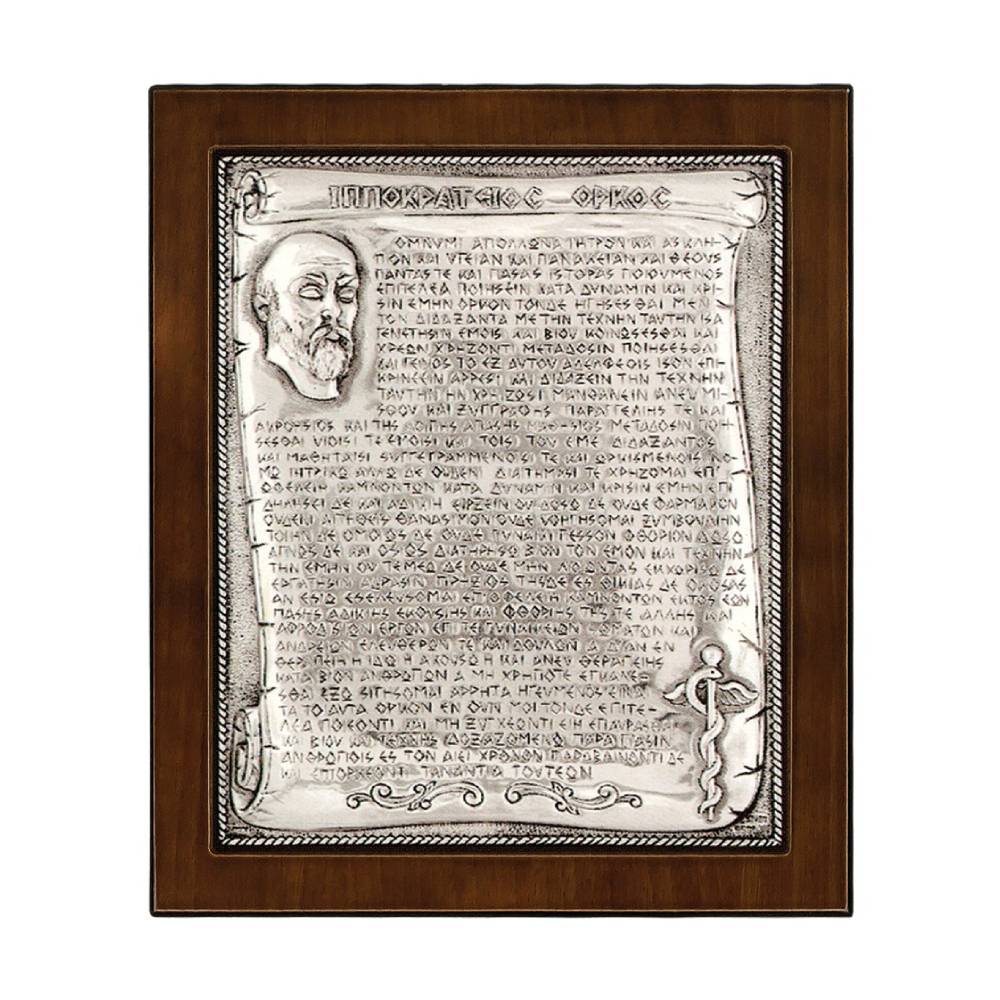 ΙΠΠΟΚΡΑΤΕΙΟΣ ΟΡΚΟΣ
ΟΜΝΥΜΙ ΑΠΟΛΛΩΝΑ ΙΗΤΡΟΝ ΚΑΙ ΑΣΚΛΗ-
ΠΙΟΝ ΚΑΙ ΥΓΕΙΑΝ ΚΑΙ ΠΑΝΑΚΕΙΑΝ ΚΑΙ ΘΕΟΥΣ
ΠΑΝΤΑΣ ΤΕ ΚΑΙ ΠΑΣΑΣ ΙΣΤΟΡΑΣ ΠΟΙΟΥΜΕΝΟΣ
ΕΠΙΤΕΛΕΑ ΠΟΙΗΣΕΙΝ ΚΑΤΑ ΔΥΝΑΜΙΝ ΚΑΙ ΚΡΙ-
ΣΙΝ ΕΜΗΝ ΟΡΚΟΝ ΤΟΝΔΕ ΗΓΗΣΕΣΘΑΙ ΜΕΝ
ΤΟΝ ΔΙΔΑΞΑΝΤΑ ΜΕ ΤΗΝ ΤΕΧΝΗΝ ΤΑΥΤΗΝ ΙΣΑ
ΓΕΝΕΤΗΣΙΝ ΕΜΟΙΣ ΚΑΙ ΒΙΟΥ ΚΟΙΝΩΣΕΣΘΑΙ ΚΑΙ
ΧΡΕΩΝ ΧΡΗΖΟΝΤΙ ΜΕΤΑΔΟΣΙΝ ΠΟΙΗΣΕΣΘΑΙ
ΚΑΙ ΓΕΝΟΣ ΤΟ ΕΞ ΑΥΤΟΥ ΑΔΕΛΦΕΟΙΣ ΙΣΟΝ ΕΠΙ-
ΚΡΙΝΕΕΙΝ ΑΡΡΕΣΙ ΚΑΙ ΔΙΔΑΞΕΙΝ ΤΗΝ ΤΕΧΝΗΝ
ΤΑΥΤΗΝ ΗΝ ΧΡΗΖΩΣΙ ΜΑΝΘΑΝΕΙΝ ΑΝΕΥ ΜΙ-
ΣΘΟΥ ΚΑΙ ΞΥΓΓΡΑΦΗΣ ΠΑΡΑΓΓΕΛΙΗΣ ΤΕ ΚΑΙ
ΑΚΡΟΗΣΙΟΣ ΚΑΙ ΤΗΣ ΛΟΙΠΗΣ ΑΠΑΣΗΣ ΜΑΘΗΣΙΟΣ ΜΕΤΑΔΟΣΙΝ ΠΟΙΗ-
ΣΕΣΘΑΙ ΥΙΟΙΣΙ ΤΕ ΕΜΟΙΣΙ ΚΑΙ ΤΟΙΣ ΤΟΥ ΕΜΕ ΔΙΔΑΞΑΝΤΟΣ
ΚΑΙ ΜΑΘΗΤΑΙΣΙ ΣΥΓΓΕΓΡΑΜΜΕΝΟΙΣΙ ΤΕ ΚΑΙ ΩΡΚΙΣΜΕΝΟΙΣ ΝΟ-
ΜΩ ΙΗΤΡΙΚΩ ΑΛΛΩ ΔΕ ΟΥΔΕΝΙ ΔΙΑΙΤΗΜΑΣΙ ΤΕ ΧΡΗΣΟΜΑΙ ΕΠ'
ΩΦΕΛΕΙΗ ΚΑΜΝΟΝΤΩΝ ΚΑΤΑ ΔΥΝΑΜΙΝ ΚΑΙ ΚΡΙΣΙΝ ΕΜΗΝ ΕΠΙ
ΔΗΛΗΣΕΙ ΔΕ ΚΑΙ ΑΔΙΚΙΗ ΕΙΡΞΕΙΝ ΟΥ ΔΩΣΩ ΔΕ ΟΥΔΕ ΦΑΡΜΑΚΟΝ
ΟΥΔΕΝΙ ΑΙΤΗΘΕΙΣ ΘΑΝΑΣΙΜΟΝ ΟΥΔΕ ΥΦΗΓΗΣΟΜΑΙ ΞΥΜΒΟΥΛΙΗΝ
ΤΟΙΗΝΔΕ ΟΜΟΙΩΣ ΔΕ ΟΥΔΕ ΓΥΝΑΙΚΙ ΠΕΣΣΟΝ ΦΘΟΡΙΟΝ ΔΩΣΩ
ΑΓΝΩΣ ΔΕ ΚΑΙ ΟΣΙΩΣ ΔΙΑΤΗΡΗΣΩ ΒΙΟΝ ΤΟΝ ΕΜΟΝ ΚΑΙ ΤΕΧΝΗΝ
ΤΗΝ ΕΜΗΝ ΟΥ ΤΕΜΕΩ ΔΕ ΟΥΔΕ ΜΗΝ ΛΙΘΙΩΝΤΑΣ ΕΚΧΩΡΗΣΩ ΔΕ
ΕΡΓΑΤΗΣΙΝ ΑΝΔΡΑΣΙΝ ΠΡΗΞΙΟΣ ΤΗΣΔΕ ΕΣ ΟΙΚΙΑΣ ΔΕ ΟΚΟΣΑΣ
ΑΝ ΕΣΙΩ ΕΣΕΛΕΥΣΟΜΑΙ ΕΠ ΩΦΕΛΕΙΗ ΚΑΜΝΟΝΤΩΝ ΕΚΤΟΣ ΕΩΝ
ΠΑΣΗΣ ΑΔΙΚΙΗΣ ΕΚΟΥΣΙΗΣ ΚΑΙ ΦΘΟΡΙΗΣ ΤΗΣ ΤΕ ΑΛΛΗΣ ΚΑΙ
ΑΦΡΟΔΙΣΙΩΝ ΕΡΓΩΝ ΕΠΙ ΤΕ ΓΥΝΑΙΚΕΙΩΝ ΣΩΜΑΤΩΝ ΚΑΙ
ΑΝΔΡΕΙΩΝ ΕΛΕΥΘΕΡΩΝ ΤΕ ΚΑΙ ΔΟΥΛΩΝ Α Δ'ΑΝ ΕΝ
ΘΕΡΑΠΕΙΗ Η ΙΔΩ Η ΑΚΟΥΣΩ Η ΚΑΙ ΑΝΕΥ ΘΕΡΑΠΕΙΗΣ
ΚΑΤΑ ΒΙΟΝ ΑΝΘΡΩΠΩΝ Α ΜΗ ΧΡΗ ΠΟΤΕ ΕΚΛΑΛΕΕ-
ΣΘΑΙ ΕΞΩ ΣΙΓΗΣΟΜΑΙ ΑΡΡΗΤΑ ΗΓΕΥΜΕΝΟΣ ΕΙΝΑΙ
ΤΑ ΤΟΙΑΥΤΑ ΟΡΚΟΝ ΕΝ ΟΥΝ ΜΟΙ ΤΟΝΔΕ ΕΠΙΤΕ-
ΛΕΑ ΠΟΙΕΟΝΤΙ ΚΑΙ ΜΗ ΞΥΓΧΕΟΝΤΙ ΕΙΗ ΕΠΑΥΡΑΣΘΑΙ
ΚΑΙ ΒΙΟΥ ΚΑΙ ΤΕΧΝΗΣ ΔΟΞΑΖΟΜΕΝΩ ΠΑΡΑ ΠΑΣΙΝ
ΑΝΘΡΩΠΟΙΣ ΕΣ ΤΟΝ ΑΙΕΙ ΧΡΟΝΟΝ ΠΑΡΑΒΑΙΝΟΝΤΙ ΔΕ
ΚΑΙ ΕΠΙΟΡΚΕΟΝΤΙ ΤΑΝΑΝΤΙΑ ΤΟΥΤΕΩΝ